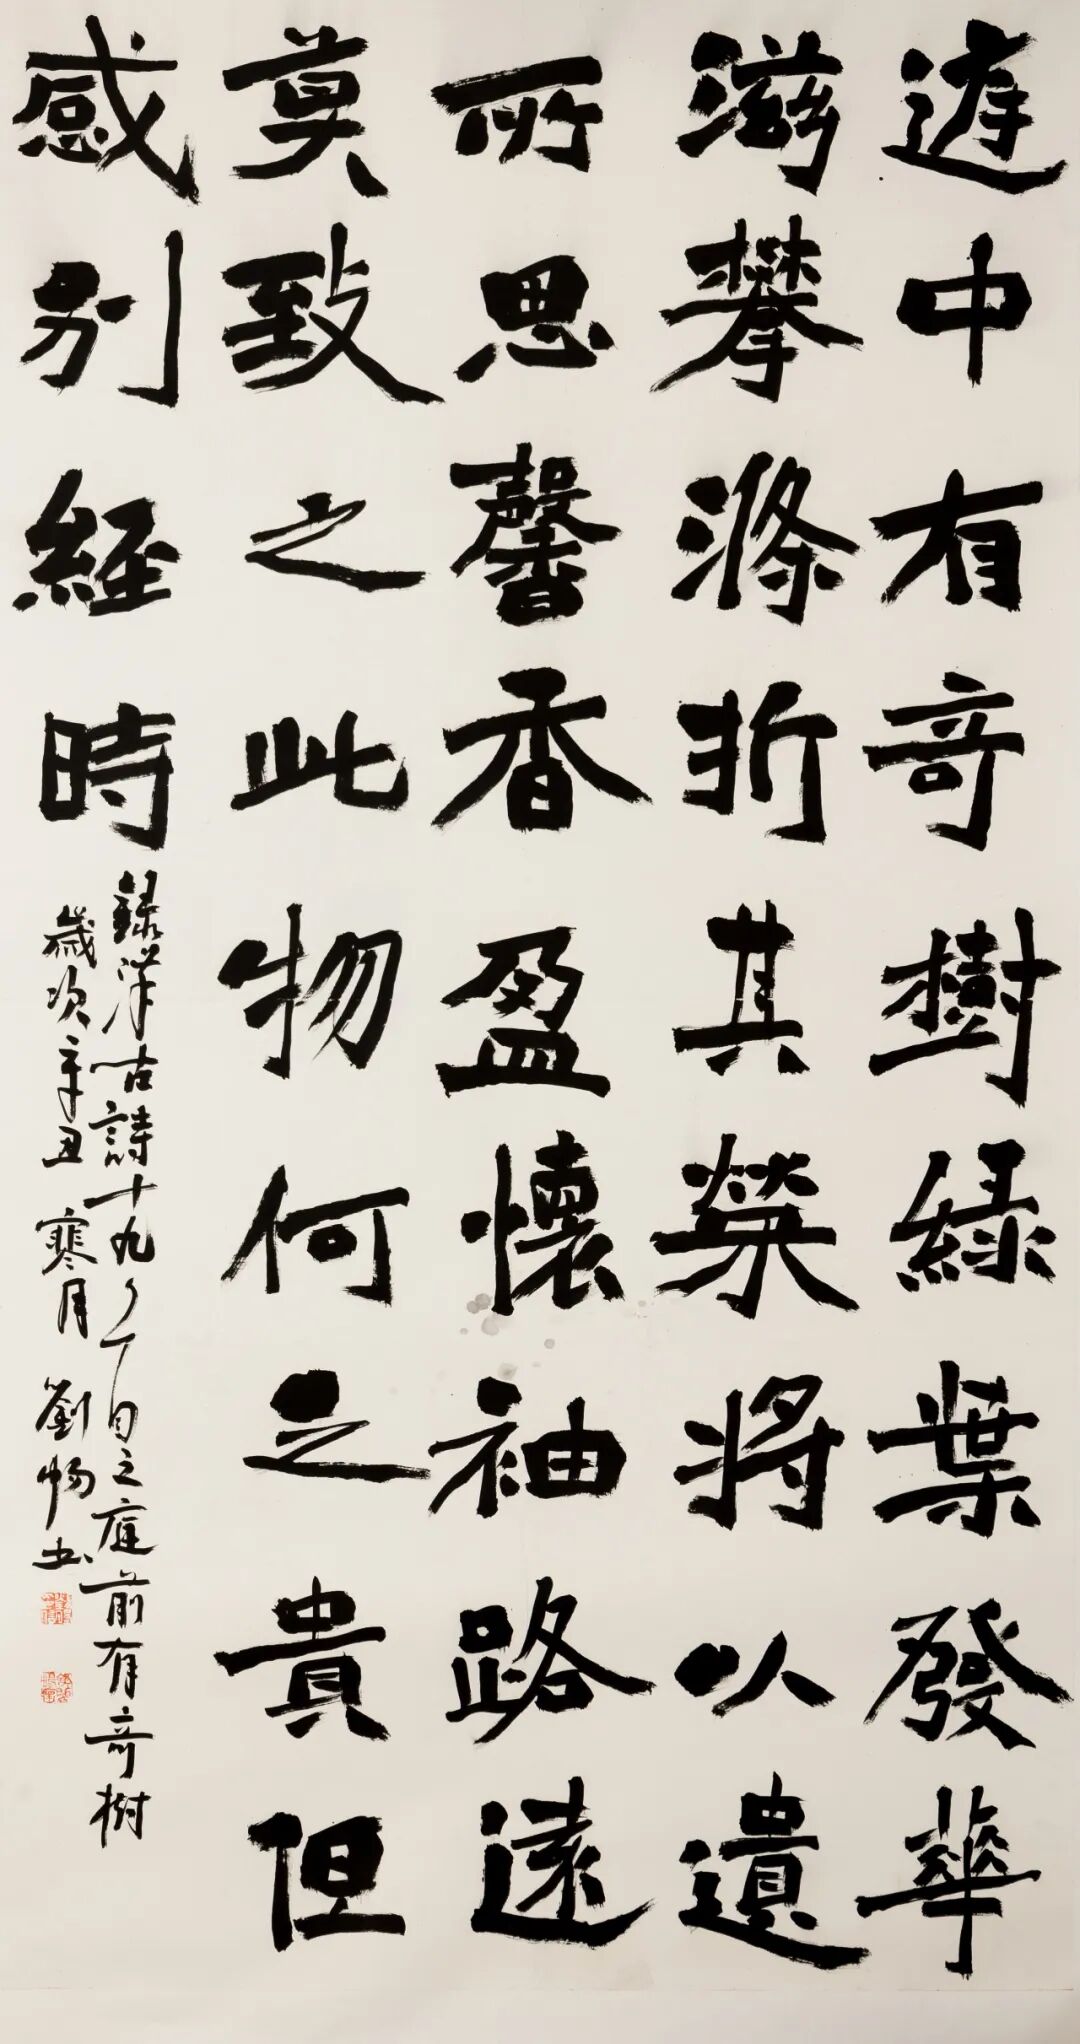 庭中有奇樹緑葉發華
滋攀滌折其榮將以遺
所思馨香盈懷袖路遠
莫致之此物何之貴但
感別經時
録漢古詩十九首之庭前有奇樹
歲次辛丑寒月劉暢书